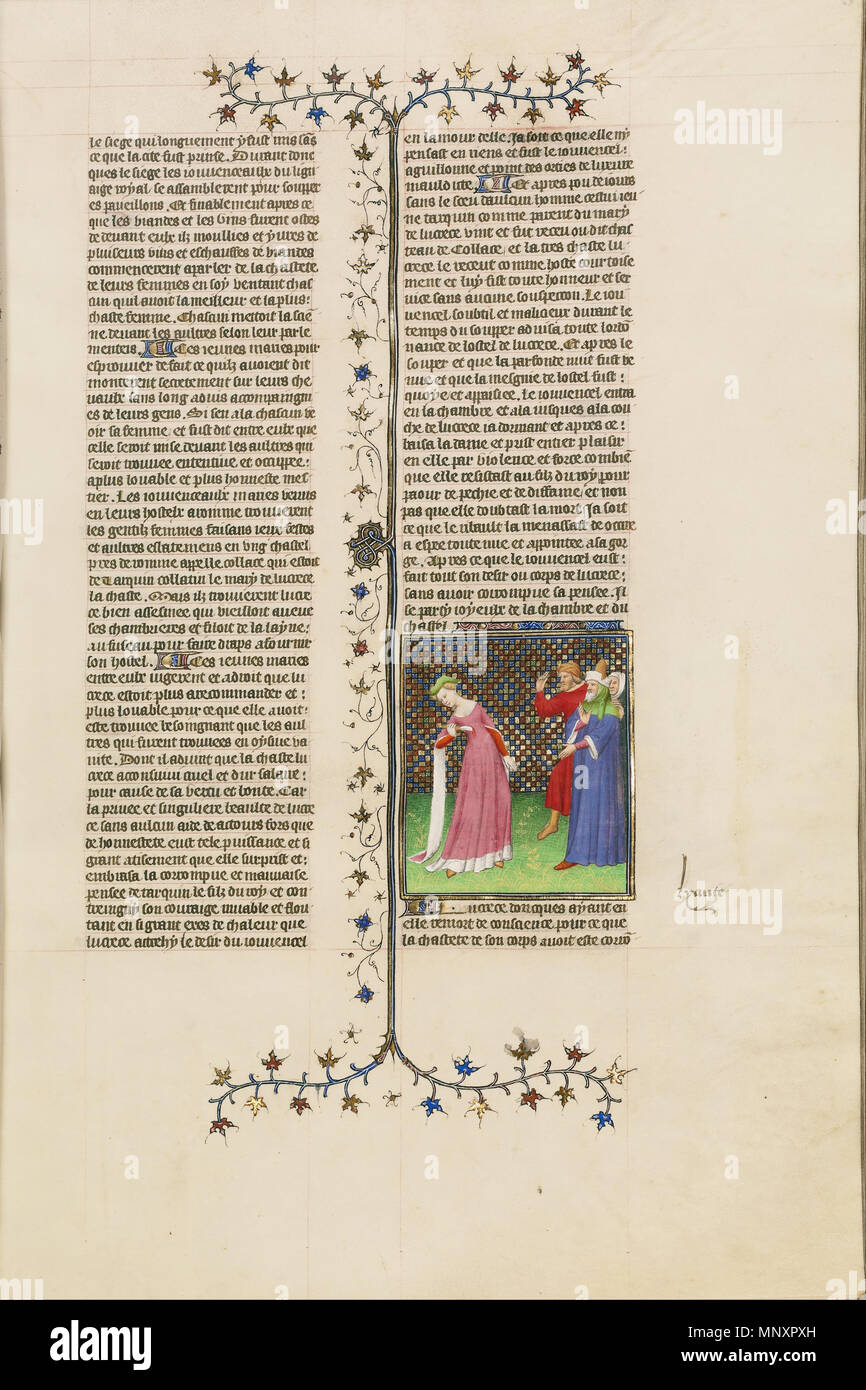 le siege qui longuement y fust mis sãs
ce que la cite fust prinse. Durant donc
ques le siege les iouuenceaulx du lign
aige royal se assamblerent pour soupper
es paueillons. Et finablement apres ce
que les viandes et les vins furent ostes
de deuant eulx ilz moullies et yures de
pluiseurs vins et eschauffes de viandes
commencerent a parler de la chastete
de leurs femmes en soy ventant chas
cun quil auoit la meilleur et la plus
chaste femme. Chascun mettoit la sien
ne deuant les aultres selon leur parle
menteis. Ces ieunes maries pour
esprouuer de fait ce quilz auoient dit
monterent secretement sur leurs che
uaulx sans long aduis acompaigni
es de leurs gens. Si sen ala chascun ve
oir sa femme et fust dit entre eulx que
celle seroit mise deuant les aultres qui
seroit trouuee ententiue et occuppee
a plus louable et plus honneste mes
tier. Les iouuenceaulx maries venus
en leurs hostelx a romme trouuerent
les gentilz femmes faisans ieux festes
et aultres esbatemens en vng chastel
pres de romme appelle collace qui estoit
de Tarquin collatin le mary de lucrece
la chaste. Mais ilz trouuerent lucre
ce bien assesmee qui vieilloit aueuc
ses chambrieres et filoit de la layne
au fuseau pour faire draps a fournir
son hostel. Ces ieunes maries
entre eulx iugerent et a droit que lu
crece estoit plus a recommander et
plus louable pour ce que elle auoit
este trouuee besoingnant que les aul
tres qui furent trouuees en oyseuse va
nite. Dont il aduint que la chaste lu
crece aconsuiui cruel et dur salaire
pour cause de sa vertu et bonte. Car
la priuee et singuliere beaulte de lucre
ce sans aulcun aide de actours fors que
de honnestete eust tele puissance et si
grant atisement que elle surprist et
embrasa la corrompue et mauuaise
pensee de tarquin le filz du roy et con
traingny son couraige muable et flou
tant en si grant eres de chaleur que
lucrece actrehy le desir du iouuencel
en lamour delle. Ja soit ce que elle ny
pensast en riens et fust le iouuencel
aguillonne et point des orties de luxure
mauldicte. Et apres pou de iours
sans le sceu daulcun homme cestui ieu
ne tarquin comme parent du mary
de lucrece vint et fut receu ou dit chas
teau de Collace, et la tres chaste lu
crece le receut comme hoste courtoise
ment et luy fist toute honneur et ser
uice sans aucune souspecon. Le iou
uencel soubtil et malicieux durant le
temps du soupper aduisa toute lordõ
nance de lostel de lucrece. Et apres le
souper et que la parfonde nuit fust ve
nue et que la mesgnie de lostel fust
quoye et appaisiee. Le iouuencel entra
en la chambre et ala iusques a la cou
che de lucrece ia dormant et apres ce
baisa la dame et prist entier plaisir
en elle par violence et force combiẽ
que elle resistast au filz du roy pour
paour de pechie et de diffame et non
pas que elle doubtast la mort. Ja soit
ce que le ribault la menassast de occire
a espee toute nue et appointee a sa gor
ge. Apres ce que le iouuencel eust
fait tout son desir ou corps de lucrece
sans auoir corrompue sa pensee. Il
se party ioyeulx de la chambre et du
chastel
Lucrece doncques ayant en
elle remort de conscience pour ce que
la chastete de son corps auoit este corrõ
alamy
Image ID: MNXPXH
www.alamy.com